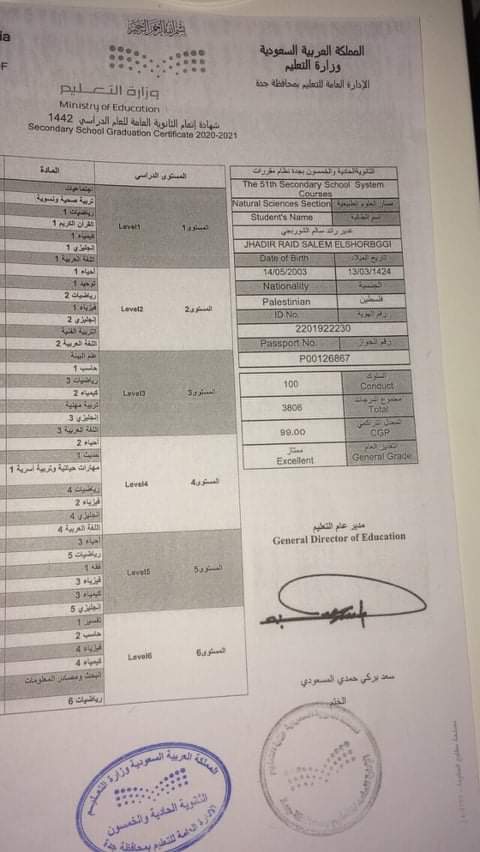 بسم الله الرحمن الرحيم
المملكة العربية السعودية
وزارة التعليم
الإدارة العامة للتعليم بمحافظة جدة
وزارة التعليم
Ministry of Education
شهادة إتمام الثانوية العامة للعام الدراسي 1442
Secondary School Graduation Certificate 2020-2021
الثانوية الحادية والخمسون بجدة نظام مقررات
The 51th Secondary School System
Courses
Natural Sciences Section مسار العلوم الطبيعية
Student's Name اسم الطالبة
غدير رائد سالم الشوربجي
JHADIR RAID SALEM ELSHORBGGI
Date of Birth تاريخ الميلاد
14/05/2003 13/03/1424
Nationality الجنسية
Palestinian فلسطين
ID No. رقم الهوية
2201922230
Passport No. رقم الجواز
P00126867
100 السلوك
Conduct
3806 مجموع الدرجات
Total
99.00 المعدل التراكمي
CGP
ممتاز التقدير العام
Excellent General Grade
المستوى الدراسي المادة
Level1 المستوى1
اجتماعيات
تربية صحية ونسوية
رياضيات 1
القرآن الكريم 1
كيمياء 1
إنجليزي 1
اللغة العربية 1
Level2 المستوى2
أحياء 1
توحيد 1
رياضيات 2
فيزياء 1
إنجليزي 2
التربية الفنية
اللغة العربية 2
Level3 المستوى3
علم البيئة
حاسب 1
رياضيات 3
كيمياء 2
تربية مهنية
إنجليزي 3
اللغة العربية 3
Level4 المستوى4
أحياء 2
حديث 1
مهارات حياتية وتربية أسرية 1
رياضيات 4
فيزياء 2
إنجليزي 4
اللغة العربية 4
Level5 المستوى5
أحياء 3
رياضيات 5
فقه 1
فيزياء 3
كيمياء 3
إنجليزي 5
Level6 المستوى6
تفسير 1
حاسب 2
فيزياء 4
كيمياء 4
البحث ومصادر المعلومات
رياضيات 6
مدير عام التعليم
General Director of Education
سعد بركي حمدي المسعودي
الختم
المملكة العربية السعودية وزارة التعليم
الثانوية الحادية والخمسون
الإدارة العامة للتعليم بمحافظة جدة